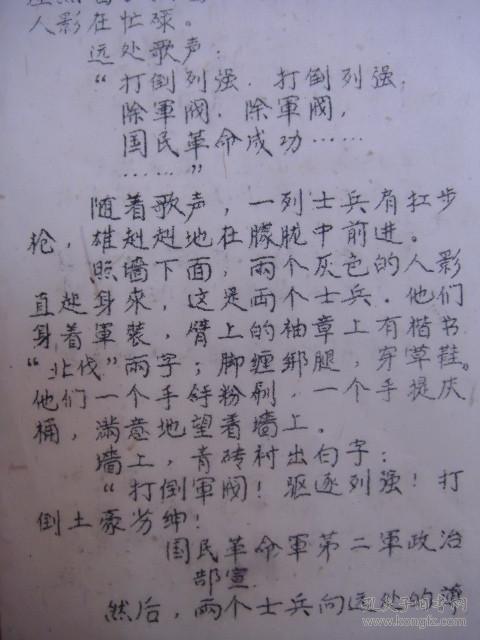 人影在忙碌。
远处歌声：
“打倒列强，打倒列强；
除軍阀，除軍阀，
国民革命成功……
……”
随着歌声，一列士兵肩扛步
枪，雄赳赳地在朦胧中前进。
照墙下面，两个灰色的人影
直起身來，这是两个士兵．他们
身着軍裝，臂上的袖章上有楷书
“北伐”两字；脚缠绑腿，穿草鞋。
他们一个手拿粉刷，一个手提灰
桶，满意地望着墙上。
墙上，青砖衬出白字：
“打倒軍阀！驱逐列强！打
倒土豪劣绅！
国民革命軍第二軍政治
部宣
然后，两个士兵向远处的薄
孔夫子旧书网
www.kongfz.com